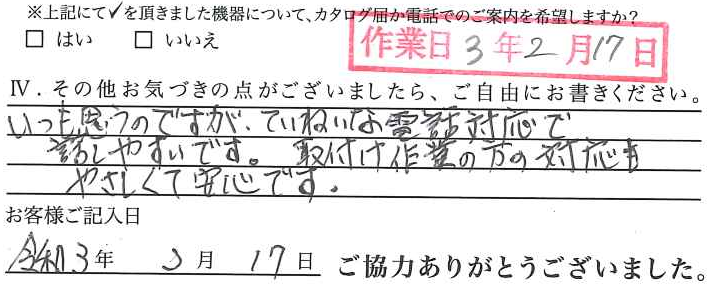 ※上記にて✓を頂きました機器について、カタログ届か電話でのご案内を希望しますか？
□ はい □ いいえ
作業日 3年2月17日
Ⅳ．その他お気づきの点がございましたら、ご自由にお書きください。
いつも思うのですが、ていねいな電話対応で
話しやすいです。取付け作業の方の対応も
やさしくて安心です。
お客様ご記入日
令和3年 2月 17日 ご協力ありがとうございました。